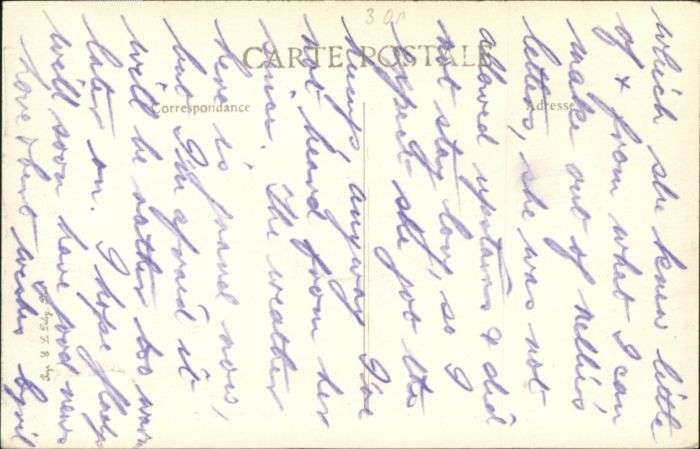 CARTE POSTALE
Correspondance
Adresse
which she knew little
of & from what I can
make out of Nellie's
letters, she was not
allowed upstairs & did
not stay long, so I
expect she got the
hump, anyway I've
not heard from her
since. The weather
here is grand now,
but I'm afraid it
will be rather too warm
later on. I hope Gladys
will soon have good news
Love & best wishes Cyril